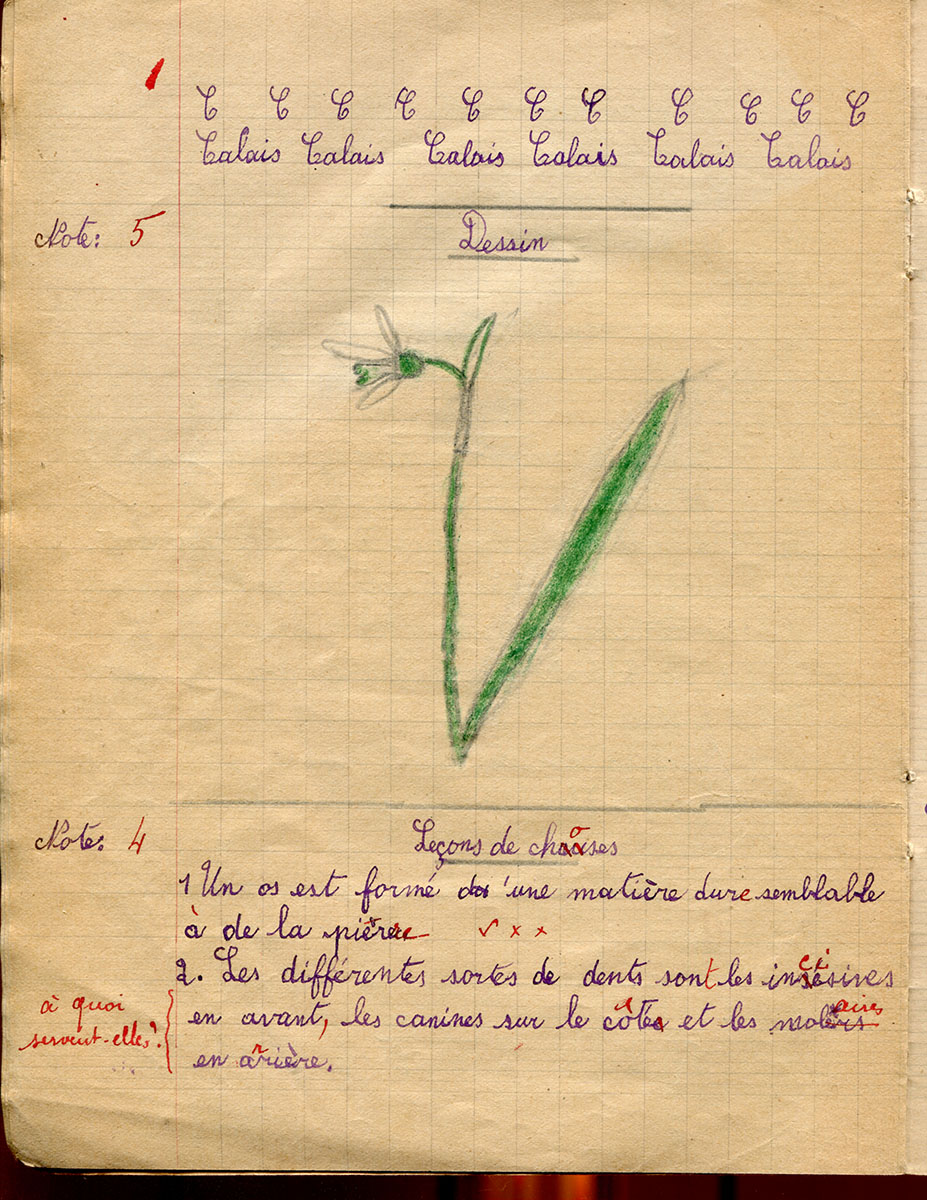 C C C C C C C C C C C
Calais Calais Calais Calais Calais Calais
Note: 5
Dessin
Note: 4
Leçons de choses
1 Un os est formé d'une matière dure semblable
à de la pierre
2. Les différentes sortes de dents sont les incisives
en avant, les canines sur le côté et les molaires
à quoi
servent-elles?
en arrière.